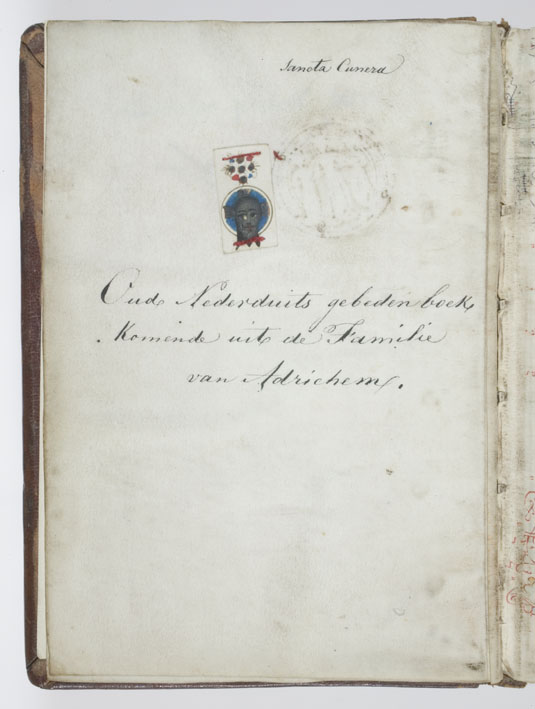 Sancta Cunera
Oud Nederduits gebeden boek
Komende uit de Familie
van Adrichem.